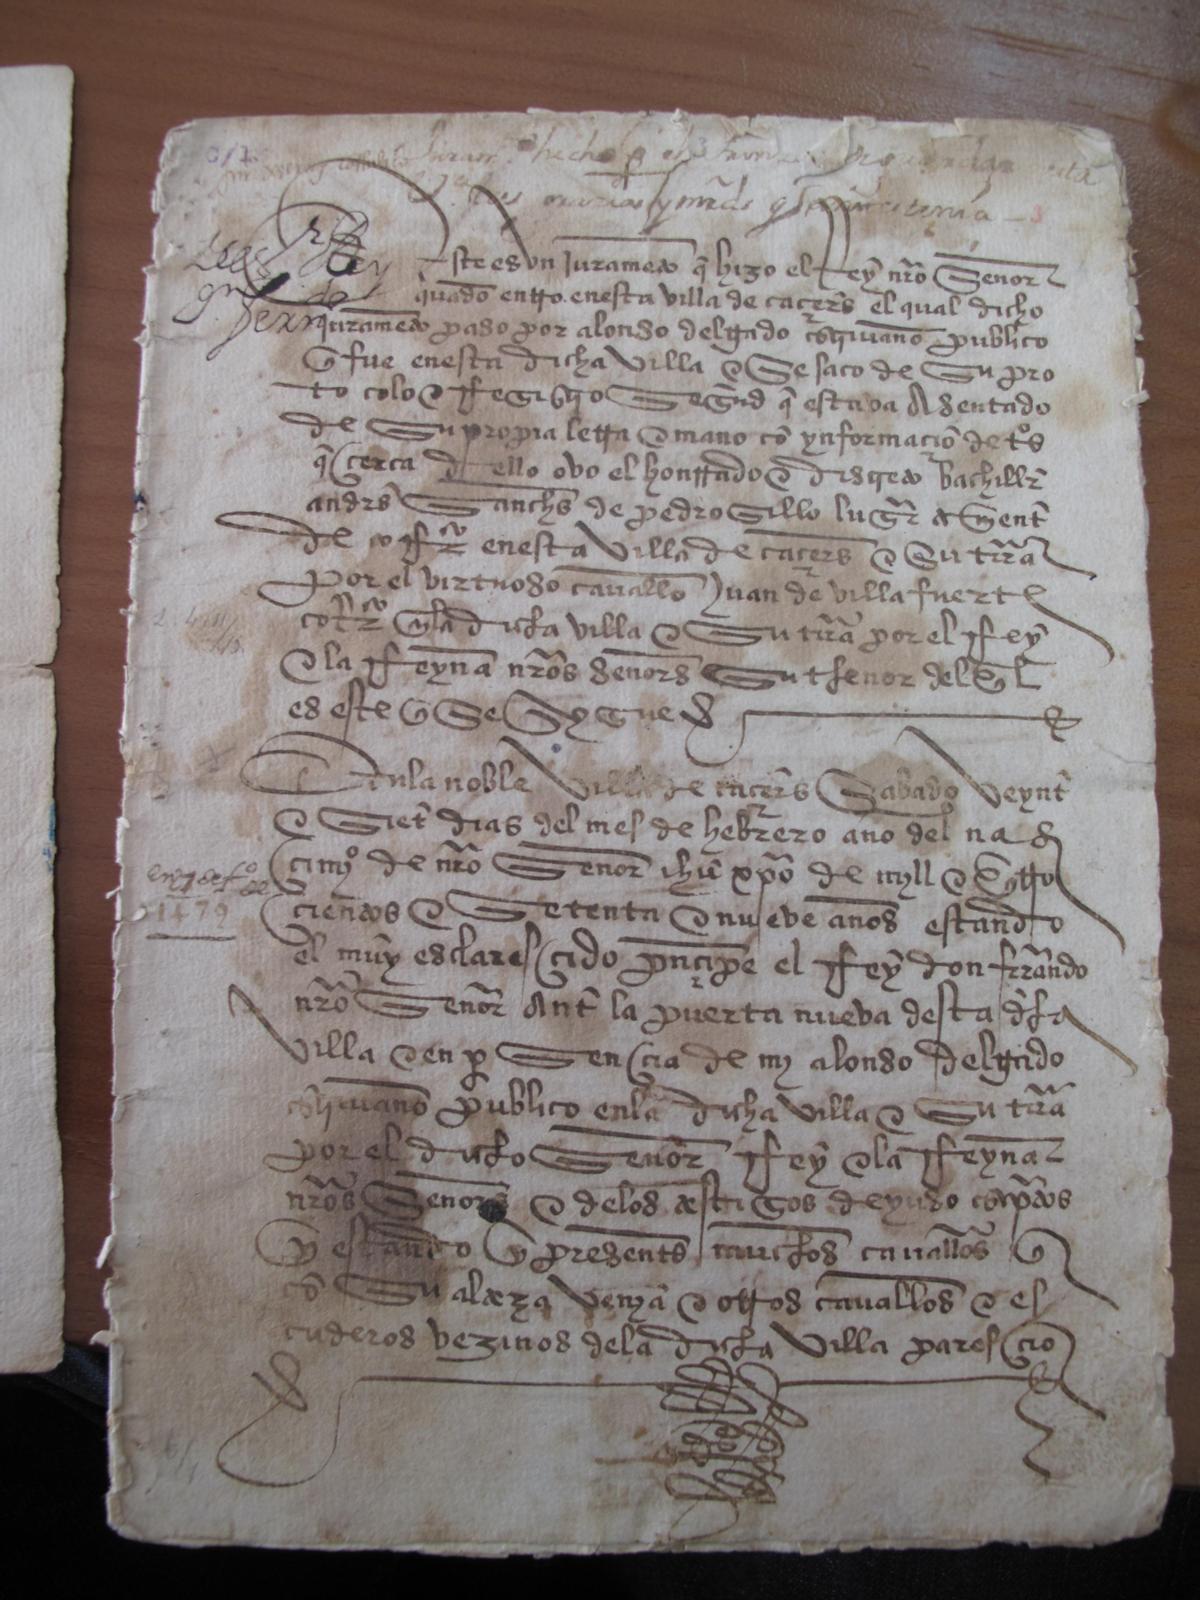 Juram.to hecho p el S
este es un Jurameto q̃ hizo el Rey nr̃o Señor
quãdo entro enesta villa de cacer̃s el qual dicho
jurameto paso por alonso delgado esc̃vano publico
q̃ fue enesta dicha villa e se saco de su pro
tocolo e Registro segũd q̃ estava Asentado
de su propia letra e mano cõ ynformaciõ de tõs
q̃ cerca dello ovo el honrrado e discreto bachillr̃
andrẽs sanchs de pedrosillo lugr̃ tenient
de cor̃ enesta villa de cacer̃s e su tirr̃a
por el virtuoso cavallo Juan de villafuerte
cor̃ enla dicha villa e su tirr̃a por el Rey
e la Reyna nr̃os señores su thenor del ql̃
es este q̃ se sygue
Enla noble villa de cacer̃s sabado veynt
e siet dias del mes de hebrero año del nas
cimº de nr̃o señor ihũ xp̃o de myll e quatro
cientos e setenta e nueve años estando
el muy esclarescido prĩcipe el Rey don ferrãdo
nr̃o señor Ant la puerta nueva desta dha
villa e en p̃sencia de my alonso delgado
esc̃vano publico enla dicha villa e su tirr̃a
por el dicho señor Rey e la Reyna
nr̃os señores e delos testigos deyuso esc̃ptos
y estando y presents muchos cavallos q̃
cõ su alteza veniã e otros cavallos e es
cuderos vezinos dela dicha villa parescio
1479